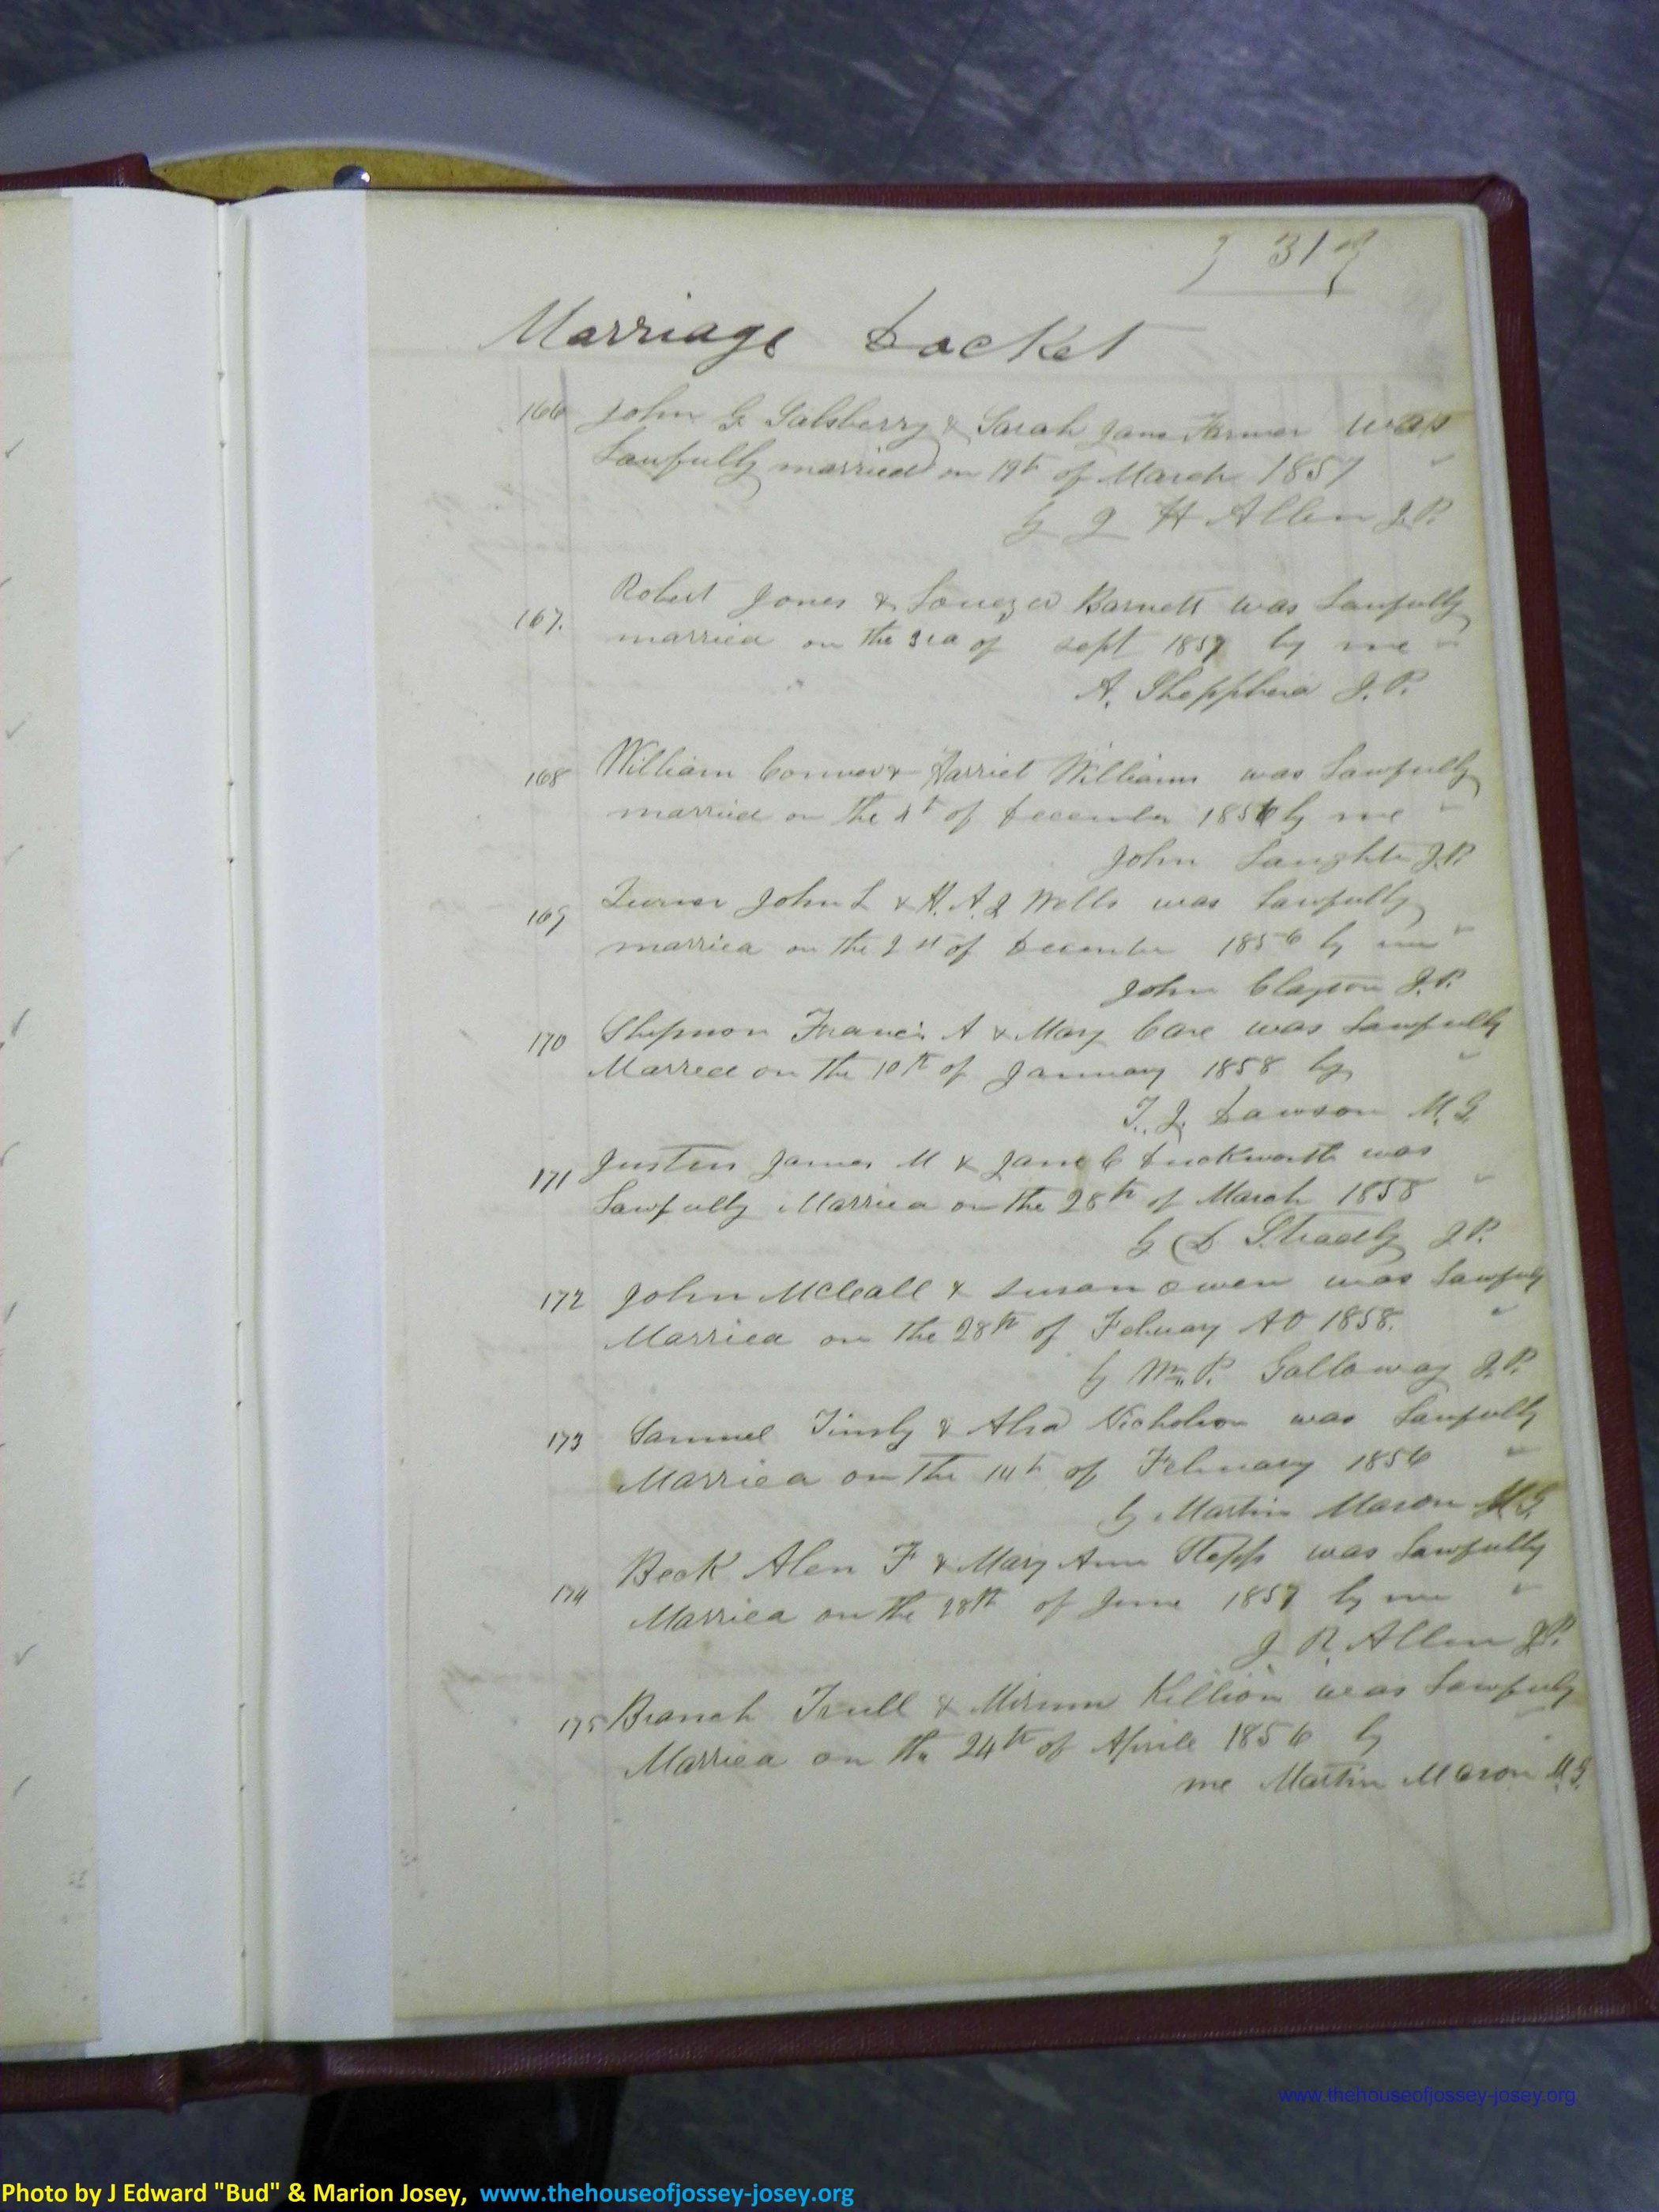 31
Marriage Docket
166 John G Salsberry & Sarah Jane Farmer was
Lawfully married on 19th of March 1857
by J H Allen J.P.
167. Robert Jones & Barnett was Lawfully
married on the 3rd of sept 1857 by me
A. Sheppherd J.P.
168 William Conner & Harriet Williams was Lawfully
married on the 4th of December 1856 by me
John J.P.
169 Turner John L & H. A. J Wells was Lawfully
married on the of December 1856 by me
John Clayton J.P.
170 Francis A & Mary Case was Lawfully
Married on the 10th of January 1858 by
T. J. Dawson M.G.
171 Justus James M & Jane C Duckworth was
Lawfully Married on the 28th of March 1858
by D Stradly J.P.
172 John McCall & Susan Owen was Lawfuly
Married on the 28th of Febuary AD 1858.
by Wm. P. Galloway J.P.
173 Samuel Tinsly & Nicholson was Lawfully
Married on the 14th of February 1856
by Martin Mason M.G.
174 Beck Alen F & Mary Ann Stepp was Lawfully
Married on the 28th of June 1857 by me
J. R. Allen J.P.
175 Branch Trull & Killion was Lawfuly
Married on the 24th of Aprile 1856 by
me Martin Mason M.G.
www.thehouseofjossey-josey.org
Photo by J Edward "Bud" & Marion Josey, www.thehouseofjossey-josey.org